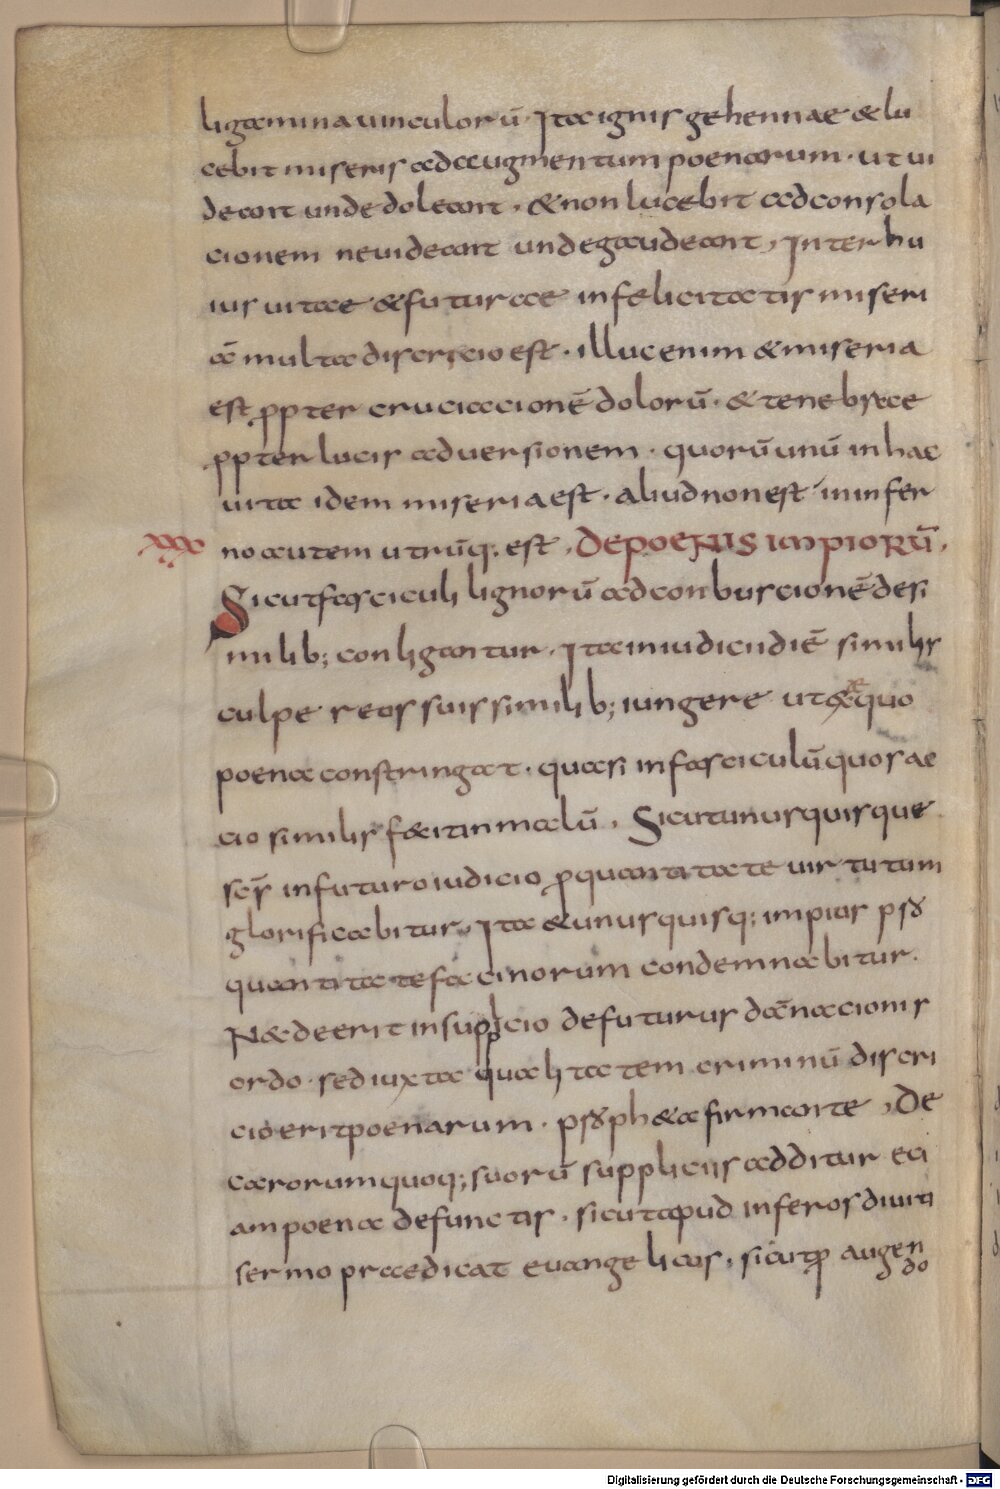 ligamina uinculorū. Ita ignis gehennae & lu
cebit miseris ad augmentum poenarum. ut ui
deant unde doleant. & non lucebit ad consola
cionem ne uideant unde gaudeant, Inter hu
ius uitae & futurae infelicitatis miseri
ā multa discrecio est. illuc enim & miseria
est ꝓpter cruciacionē dolorū. & tenebrae
ꝓpter lucis aduersionem. quorū unū in hac
uita idem miseria est. aliud non est. in infer
xxx no autem utrūq; est, DE POENIS IMPIORŪ,
Sicut fasciculi lignorū ad conburscionē desi
milib; conligantur. Ita in iudicii diē similis
culpe reos suis similib; iungere ut ex equo
poena constringat. quasi in fasciculū quos ac
cio similis fecit in malū, Sicut unusquisque
scs̄ in futuro iudicio ꝓ quantitate uirtutum
glorificabitur, Ita & unusquisq; impius pro
quantitate facinorum condemnabitur.
N& deerit in supplicio defuturus dānacionis
ordo. sed iuxta qualitatem criminū discri
cio erit poenarum. proph&a firmante, De
carorum quoq; suorū suppliciis additur eci
am poena defunctis. sicut apud inferos diuiti
sermo praedicat euangelicus, sicut ꝓ augen
do
Digitalisierung gefördert durch die Deutsche Forschungsgemeinschaft - DFG